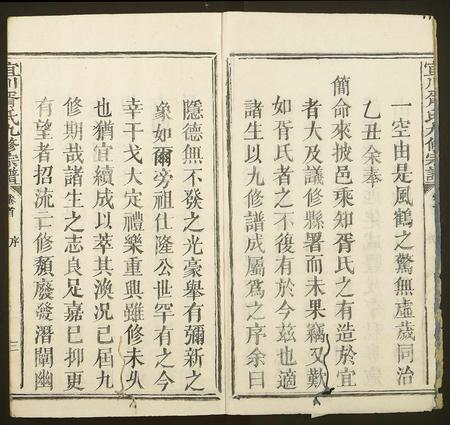 宜川胥氏九修宗譜
一空由是風鶴之驚無虛歲同治
乙丑余奉
簡命來披邑乘知胥氏之有造於宜
者大及議修縣署而未果竊又歎
如胥氏者之不復有於今茲也適
諸生以九修譜成屬為之序余曰
隱德無不發之光豪舉有彌新之
象如爾旁祖仕隆公世罕有之今
幸干戈大定禮樂重興雖修未久
也猶宜續成以萃其渙況已屆九
修期哉諸生之志良足嘉巳抑更
有望者招流亡修頹廢發潛闡幽
宜川胥氏九修宗譜
卷首
序
三